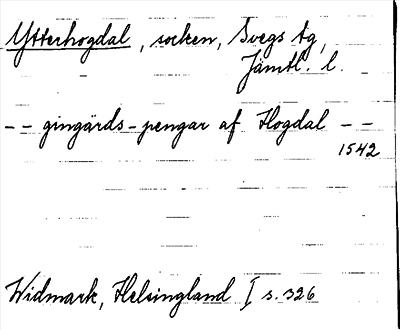 Ytterhogdal, socken, Svegs tg,
Jämtl. l.
-- gingärds-pengar af Hogdal --
1542
Widmark, Helsingland I s. 326